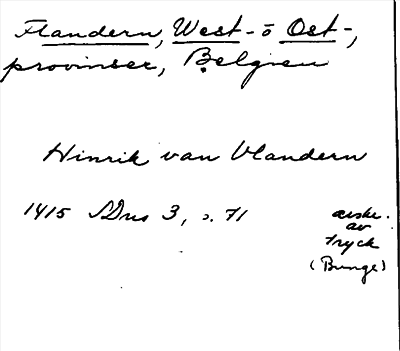 Flandern, West- o Ost-,
provinser, Belgien
Hinrik van Vlandern
1415 SDns 3, s. 71
avskr.
av
tryck
(Bunge)